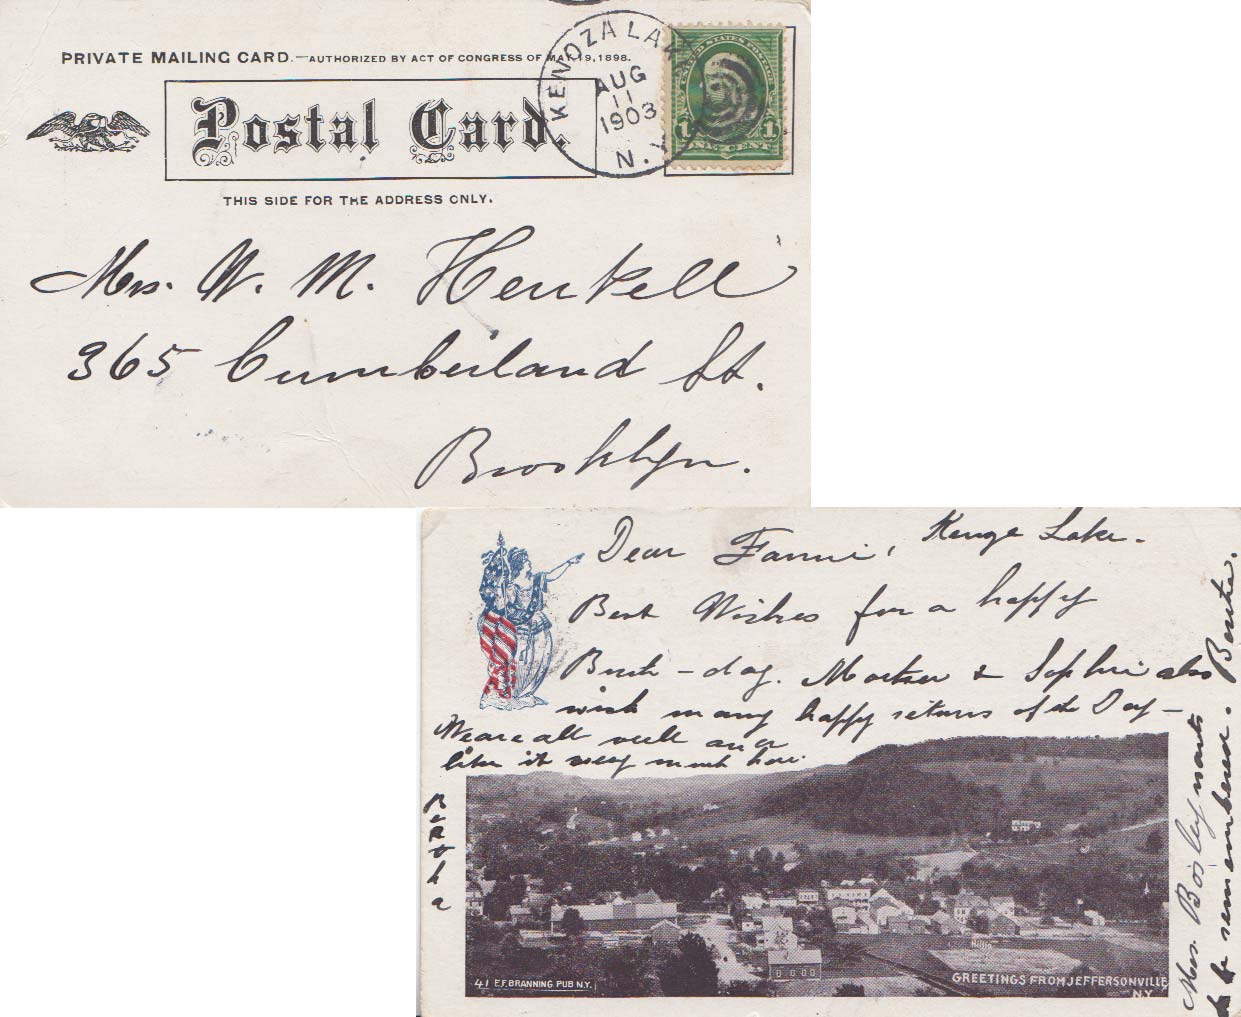 PRIVATE MAILING CARD.—AUTHORIZED BY ACT OF CONGRESS OF MAY 19, 1898.
Postal Card.
THIS SIDE FOR THE ADDRESS ONLY.
KENOZA LAKE
AUG
11
1903
N.Y.
UNITED STATES POSTAGE
1 1
ONE CENT
Mrs. W. M. Henkell
365 Cumberland St.
Brooklyn.
Kenoza Lake.
Dear Fannie,
Best Wishes for a happy
Birth-day. & Sophie also
wish many happy returns of the Day—
We are all well and
like it very much here.
Bertha
Mrs. Bosley wants
to be remembered.
41 E.F. BRANNING PUB N.Y.
GREETINGS FROM JEFFERSONVILLE
N.Y.